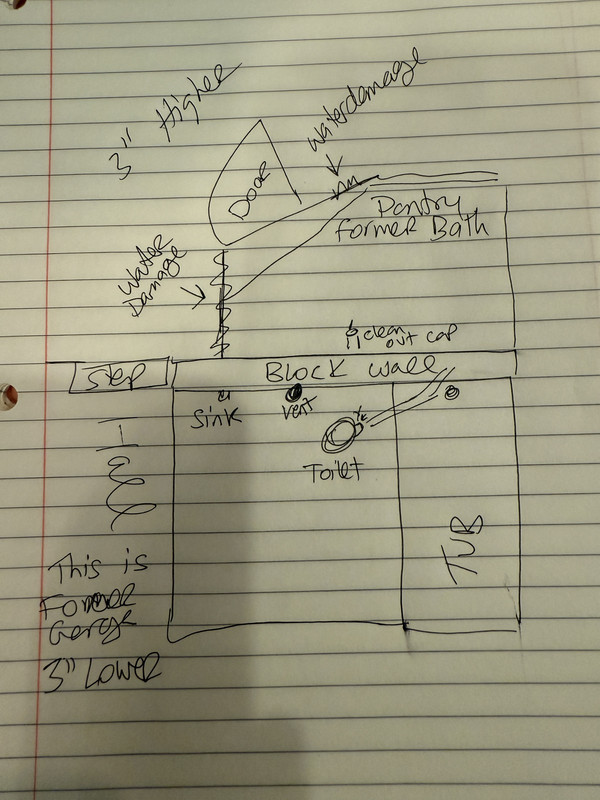 3" Higher
waterdamage
Door
Pantry
former Bath
Water
Damage
clean
out cap
Step
Block wall
Sink
vent
Toilet
TUB
This is
Former
Garge
3" Lower